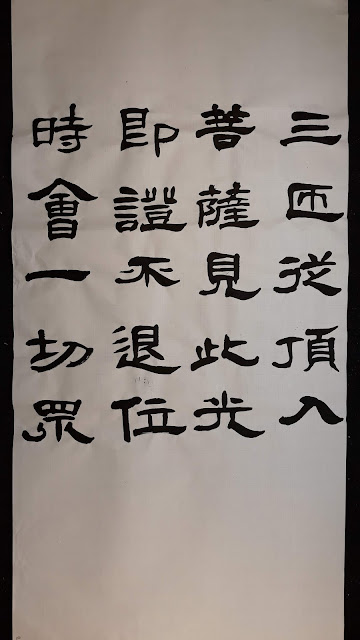 三匝從頂入
菩薩見此光
即證不退位
時會一切眾